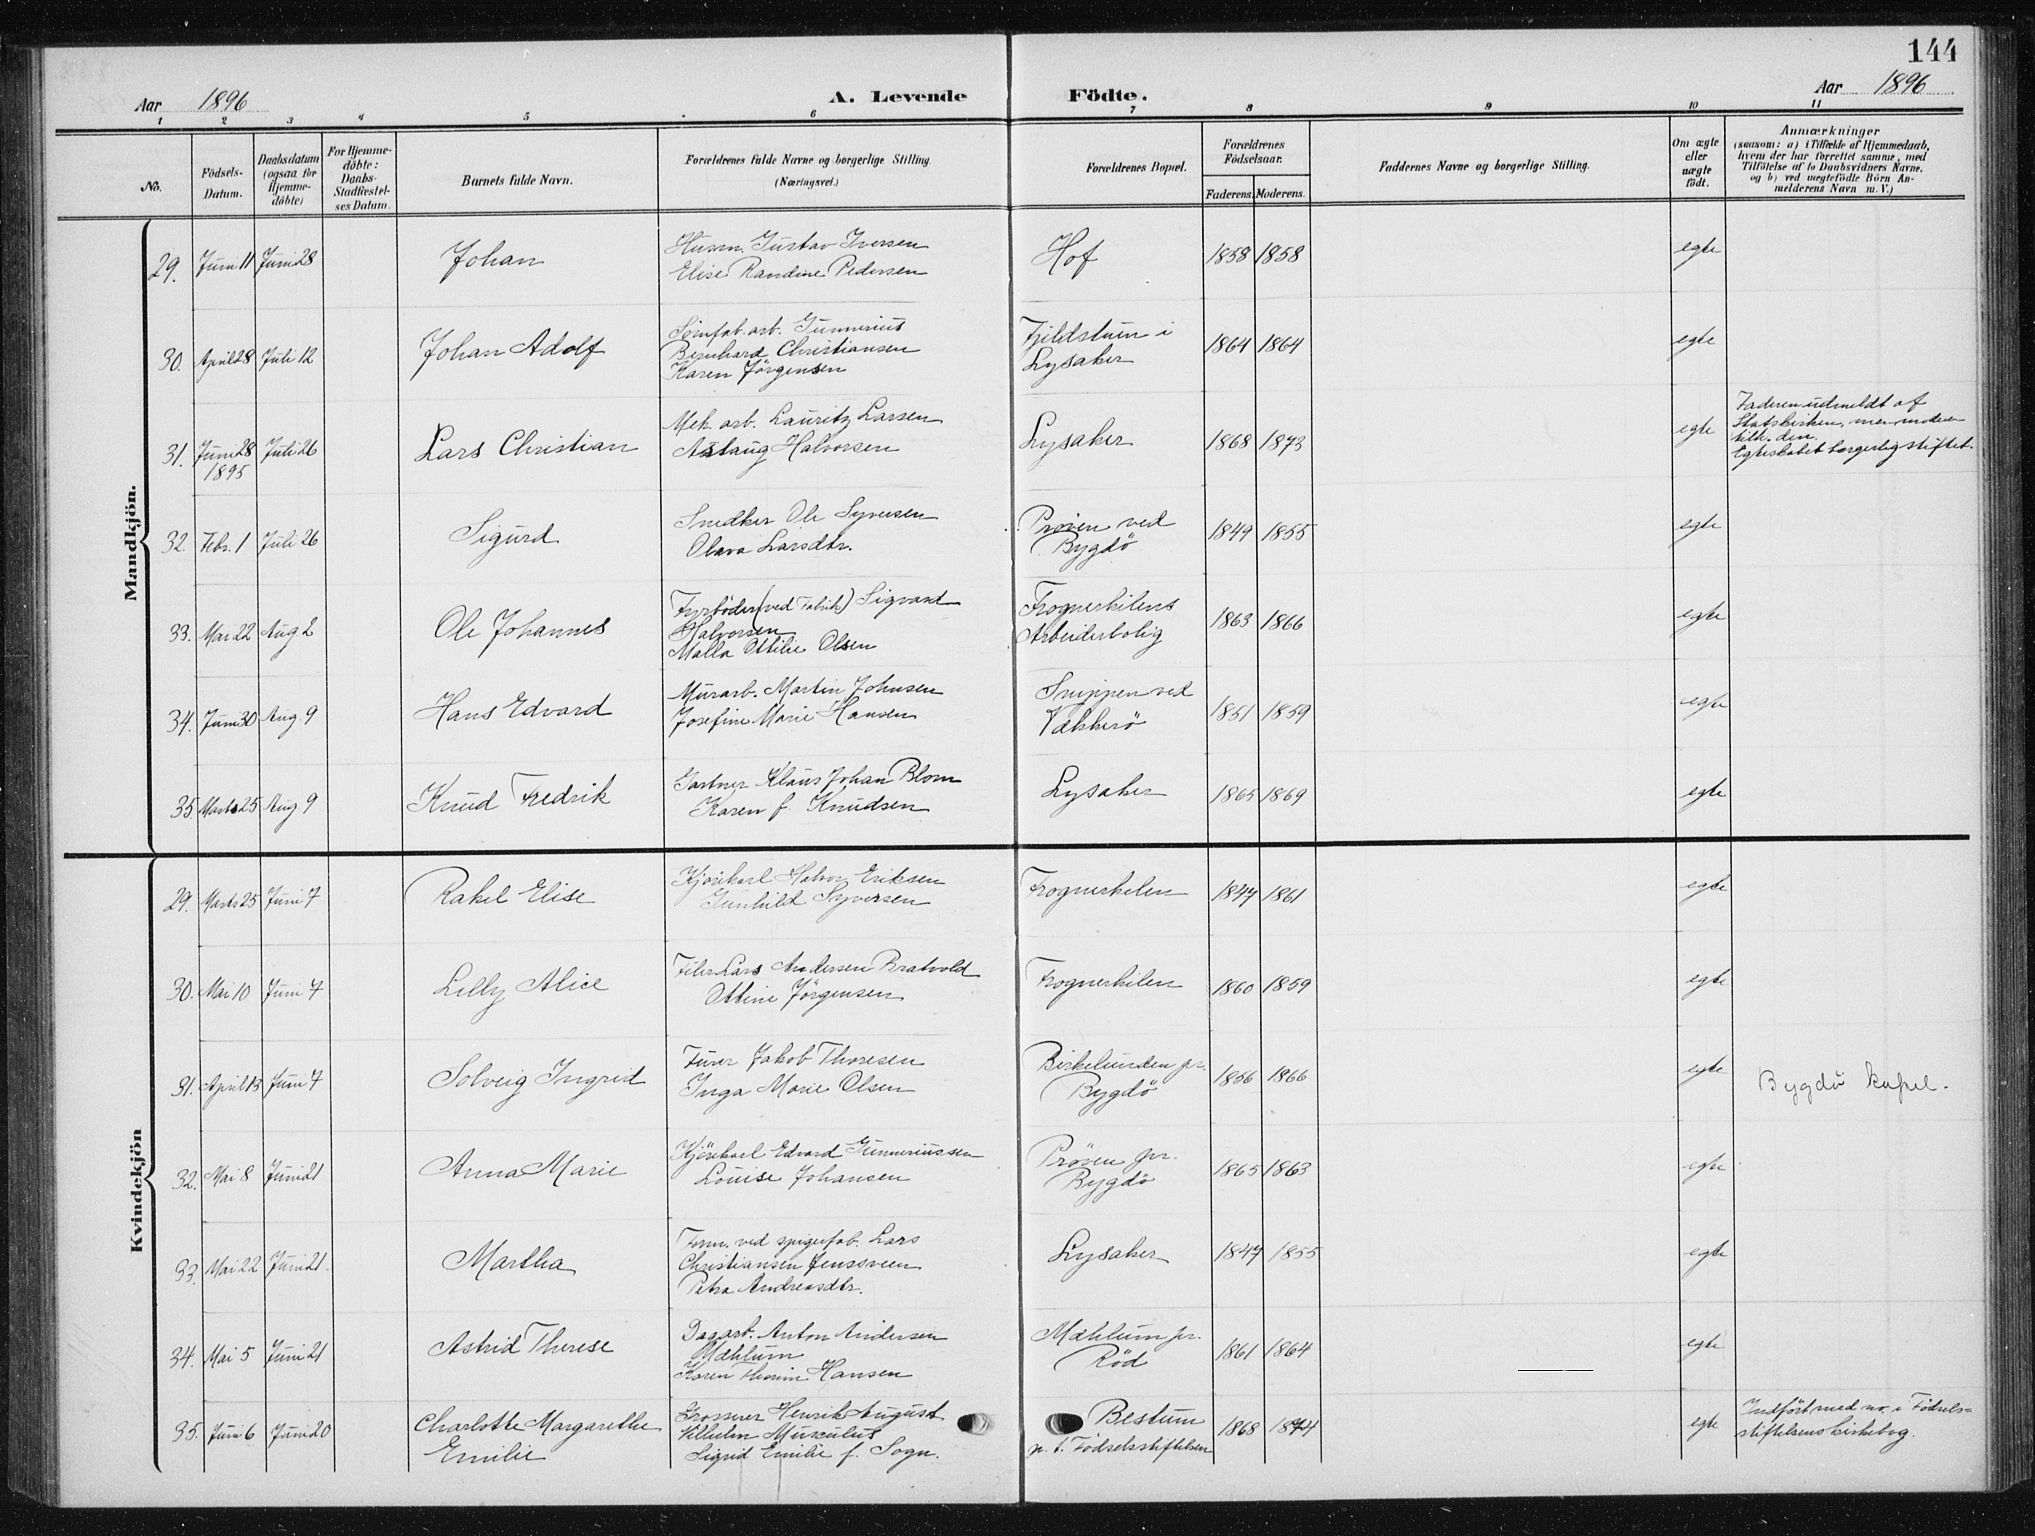 144
Aar 1896 A. Levende Födte. Aar 1896
1 2 3 4 5 6 7 8 9 10 11
No.
Födsels-Datum.
Daabsdatum (ogsaa for Hjemme-döbte)
For Hjemme-döbte: Daabs-Stadfæstel-ses Datum.
Barnets fulde Navn.
Forældrenes fulde Navne og borgerlige Stilling. (Næringsvei.)
Forældrenes Bopæl.
Forældrenes Födselsaar.
Faderens. Moderens.
Faddernes Navne og borgerlige Stilling.
Om ægte eller uægte födt.
Anmærkninger
(saasom: a) i Tilfælde af Hjemmedaab,
hvem der har forrettet samme, med
Tilföielse af to Daabsvidners Navne,
og b) ved uægtefödte Börn An-
melderens Navn m. V.)
Mandkjön.
29. Juni 11 Juni 28 Johan
Husm. Gustav Iversen
Elise Randine Pedersen
Hof 1858 1858 egte
30. April 28 Juli 12 Johan Adolf
Sömfab. arb. Gunnerius
Bernhard Christiansen
Karen Jörgensen
Fjeldstuen i
Lysaker
1864 1864 egte
31. Juni 28 1895 Juli 26 Lars Christian
Mek. arb. Lauritz Larsen
Aslaug Halvorsen
Lysaker 1868 1873 egte
Faderen udmeldt af
Statskirken, men moderen
tilh. den.
Egteskabet borgerlig stiftet.
32. Febr. 1 Juli 26 Sigurd
Snedker Ole Syversen
Olava Larsdtr.
Pröven ved
Bygdö
1849 1855 egte
33. Mai 22 Aug 2 Ole Johannes
Fyrböder (ved Fabrik) Sigvard
Halvorsen
Malla Ottilie Olsen
Frognerkilens
Arbeiderbolig
1863 1866 egte
34. Juni 30 Aug 9 Hans Edvard
Murarb. Martin Johnsen
Josefine Marie Hansen
Snippen ved
Vækkerö
1851 1859 egte
35. Marts 25 Aug 9 Knud Fredrik
Gartner Klaus Johan Blom
Karen f. Knudsen
Lysaker 1865 1869 egte
Kvindekjön
29. Marts 25 Juni 7 Rakel Elise
Kjörekarl Halvor Eriksen
Gunhild Syversen
Frognerkilen 1847 1861 egte
30. Mai 10 Juni 7 Lilly Alice
Filer Lars Andersen Bratvold
Ottine Jörgensen
Frognerkilen 1860 1859 egte
31. April 13 Juni 7 Solveig Ingrid
Furer Jakob Thoresen
Inga Marie Olsen
Birkelunden pr.
Bygdö
1856 1866 egte
Bygdö kapel.
32. Mai 8 Juni 21 Anna Marie
Kjörekarl Edvard Gunneriussen
Louise Johansen
Pröven pr.
Bygdö
1865 1863 egte
33. Mai 22 Juni 21. Martha
Form. ved spigerfab. Lars
Christiansen Jensveen
Petra Andreasdtr.
Lysaker 1847 1855 egte
34. Mai 5 Juni 21 Astrid Therese
Dagarb. Anton Andersen
Mæhlum
Karen Thorine Hansen
Mæhlum pr.
Röd
1861 1864 egte
35. Juni 6 Juni 20 Charlotte Margarethe
Emilie
Grosserer Henrik August
Vilhelm Musculus
Sigrid Emilie f. Sogn.
Bestum
p. t. Födselsstiftelsen
1868 1874 egte
Indfört med no. i Födsels=
stiftelsens kirkebog.